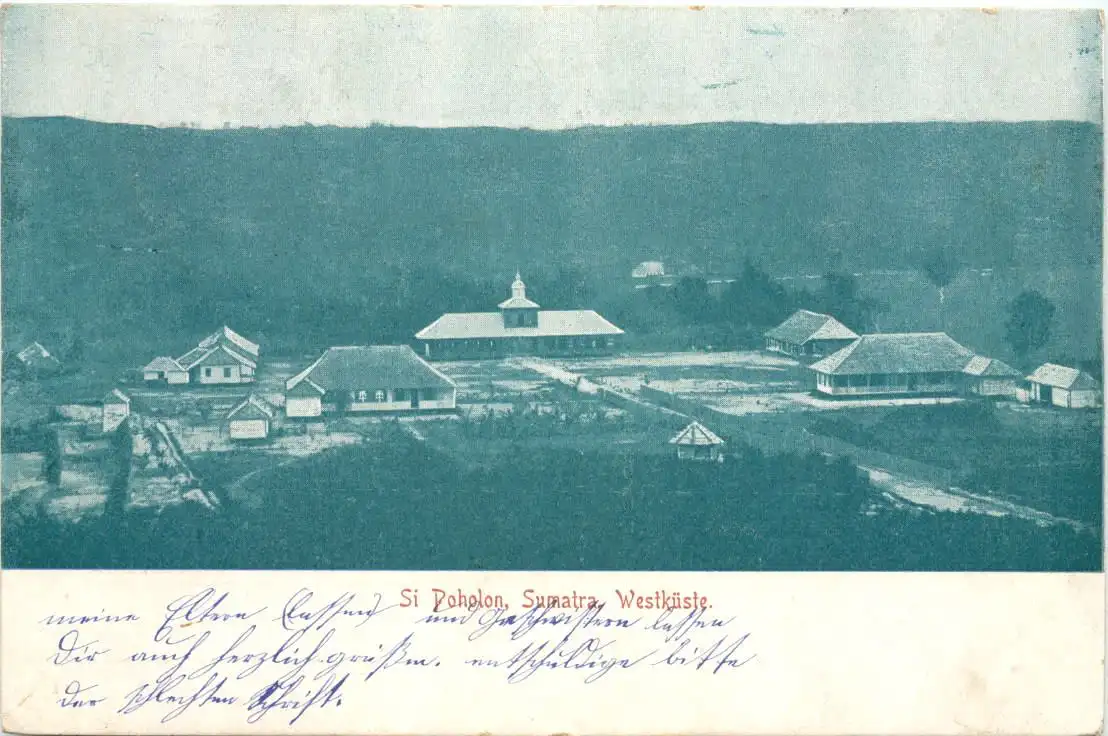 Si Poholon, Sumatra, Westküste.
meine Eltern (lassen) und Geschwistern lassen
Dir auch herzlich grüßen. entschuldige bitte
der schlechten Schrift.